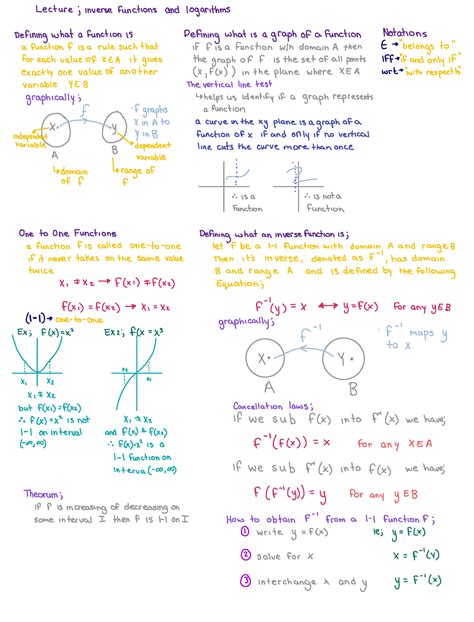 Lecture ; inverse functions and logarithms
Defining what a function is
a function f is a rule such that
for each value of x∈A it gives
exactly one value of another
variable y∈B
graphically;
f
· f graphs
x in A to
y in B
x
y
independent
variable
dependent
variable
A
B
↳ domain
of f
↳ range of
f
Defining what is a graph of a function
if f is a function w/h domain A then
the graph of f is the set of all points
(x, f(x)) in the plane where x∈A
The vertical line test
↳ helps us identify if a graph represents
a function
a curve in the xy plane is a graph of a
function of x if and only if no vertical
line cuts the curve more than once
∴ is a
function
∴ is not a
function
Notations
∈ → "belongs to"
iff → "if and only if"
wrt → "with respect to"
One to One Functions
a function f is called one-to-one
if it never takes on the same value
twice
x₁ ≠ x₂ → f(x₁) ≠ f(x₂)
f(x₁) = f(x₂) → x₁ = x₂
(1-1) → one-to-one
Ex; f(x)=x²
x₁ x₂
x₁ ≠ x₂
but f(x₁)=f(x₂)
∴ f(x)=x² is not
1-1 on interval
(-∞,∞)
Ex2; f(x)=x³
x₁ x₂
x₁ ≠ x₂
and f(x₁) ≠ f(x₂)
∴ f(x)=x³ is a
1-1 function on
interva (-∞,∞)
Theorum;
if f is increasing of decreasing on
some interval I then f is 1-1 on I
Defining what an inverse function is;
let f be a 1-1 function with domain A and range B
Then it's inverse, denoted as f⁻¹, has domain
B and range A and is defined by the following
Equation;
f⁻¹(y) = x ↔ y=f(x) For any y∈B
graphically;
f⁻¹
· f⁻¹ maps y
to x
x
y
A
B
Cancellation laws;
if we sub f(x) into f⁻¹(x) we have;
f⁻¹(f(x)) = x for any x∈A
if we sub f⁻¹(x) into f(x) we have;
f(f⁻¹(y)) = y for any y∈B
How to obtain f⁻¹ from a 1-1 function f;
① write y = f(x) ie; y = f(x)
② solve for x x = f⁻¹(y)
③ interchange x and y y = f⁻¹(x)